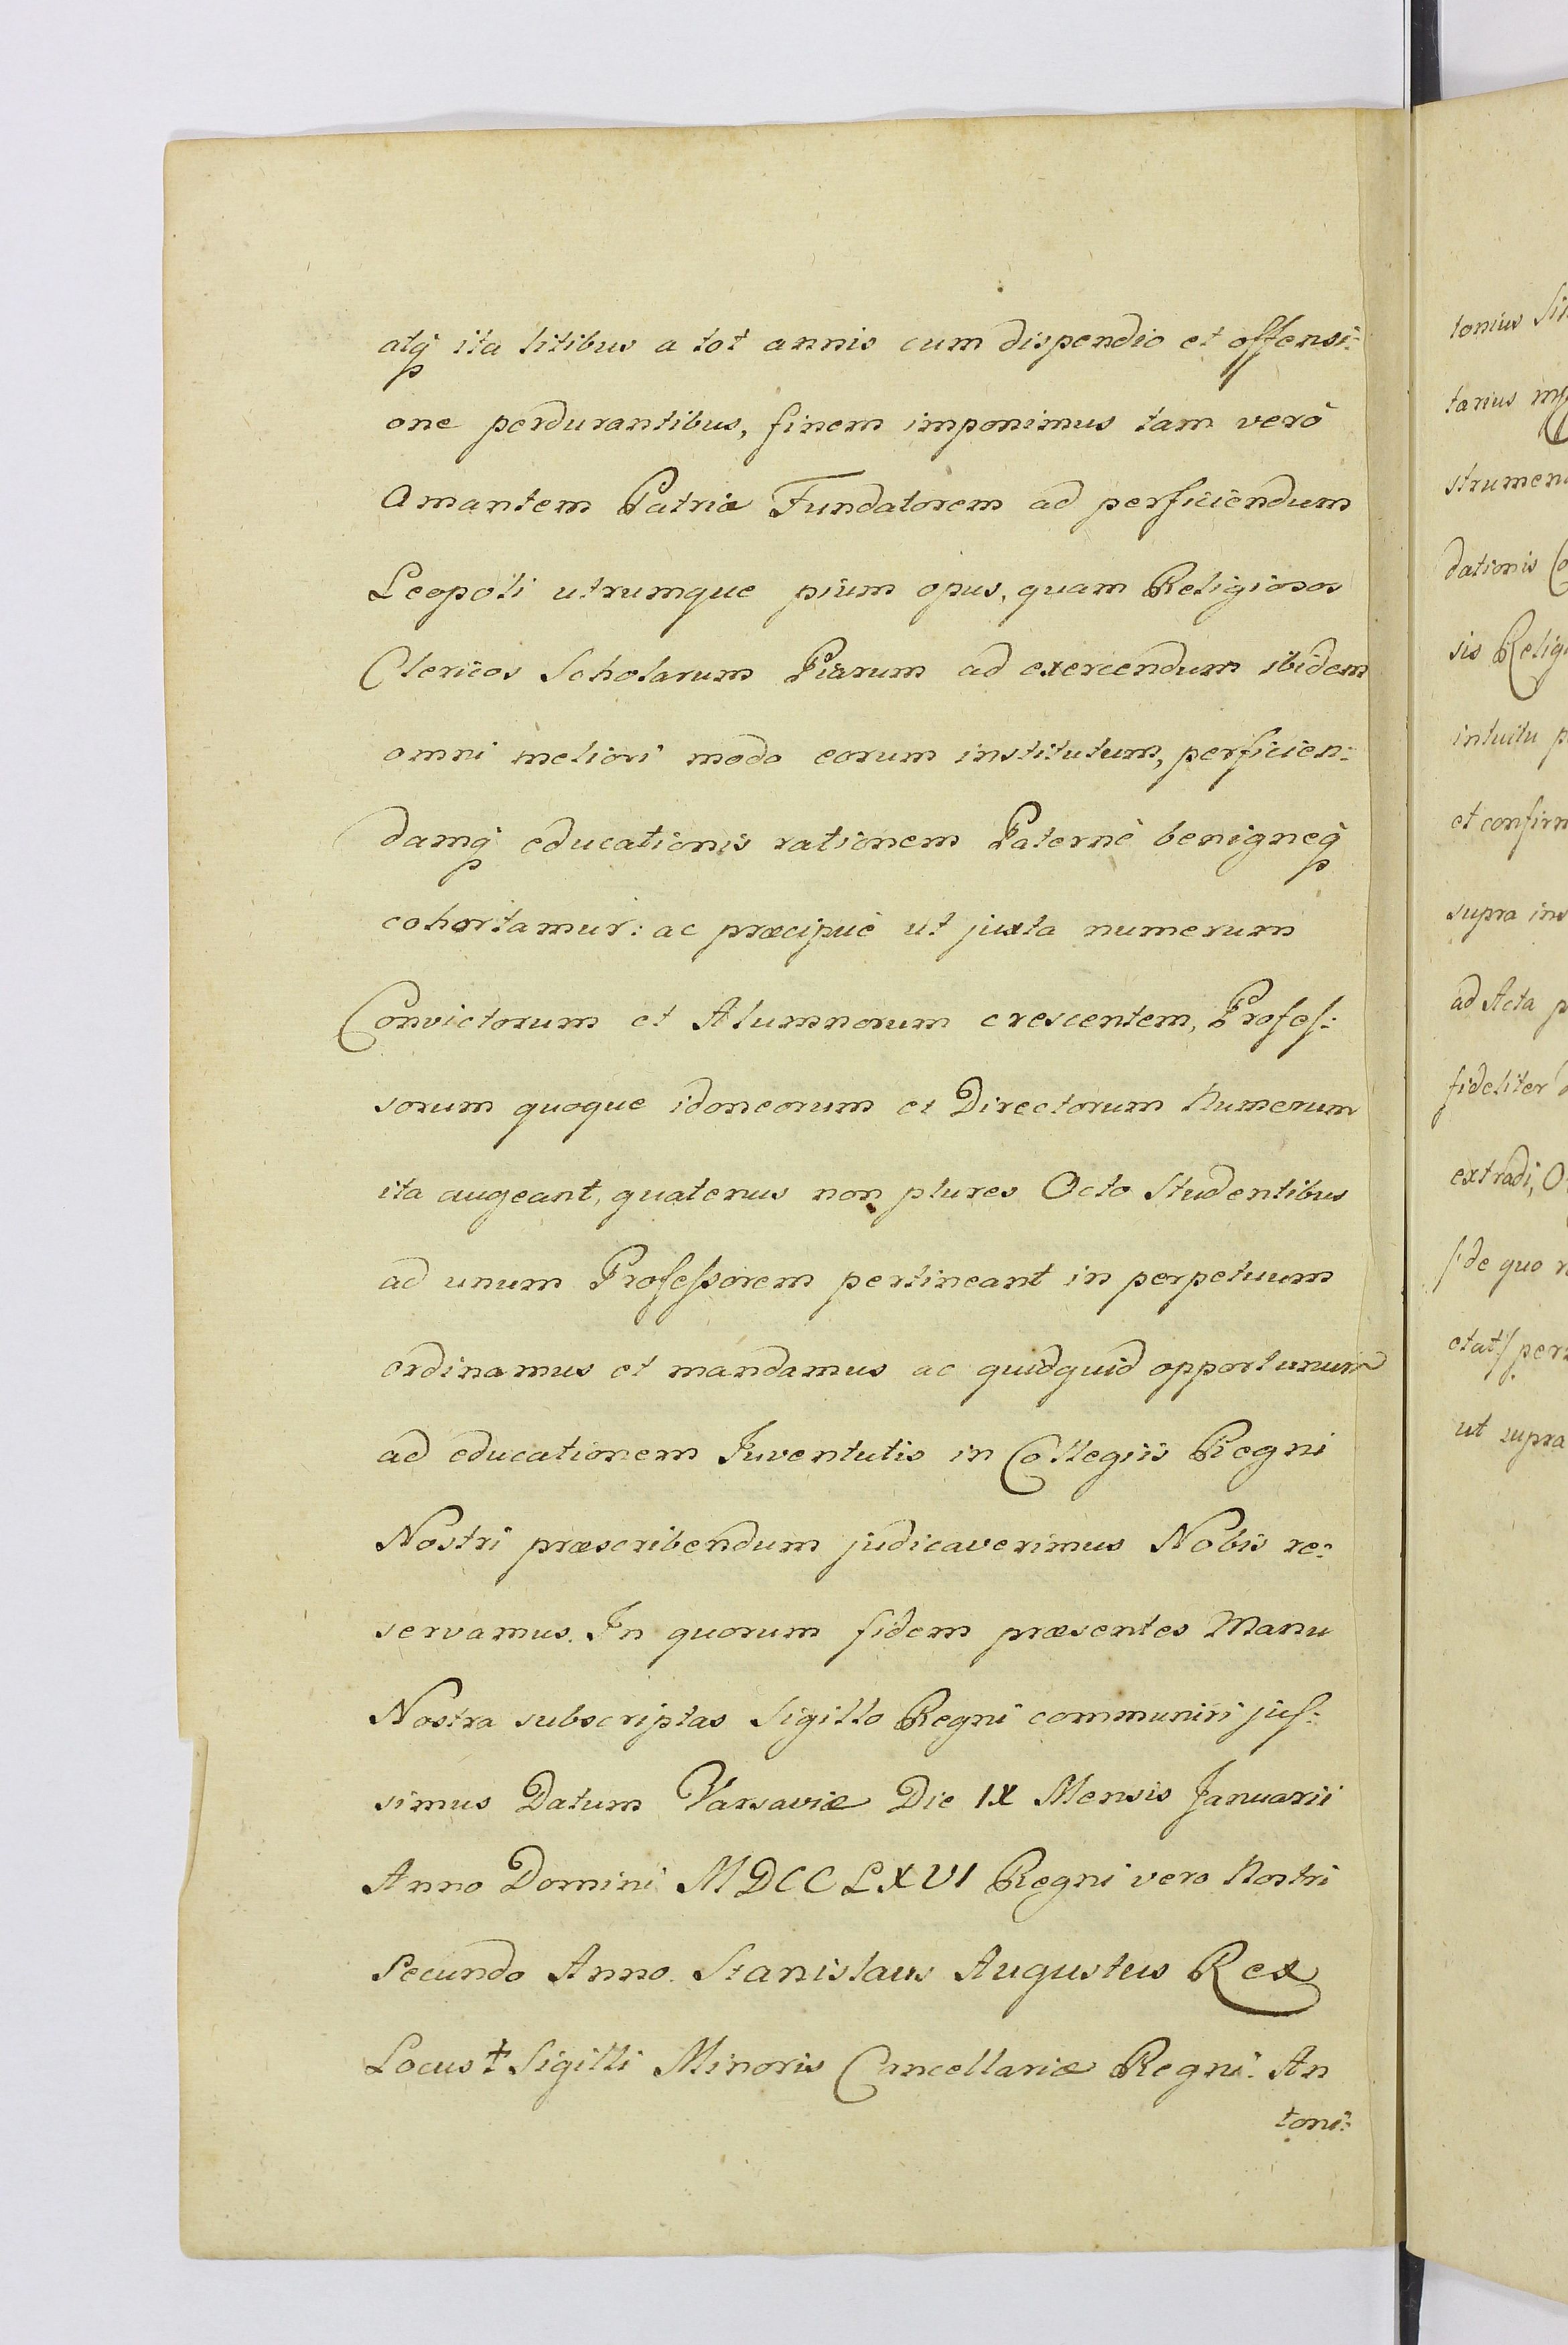 atq ita litibus a tot annis cum dispendio et offensi:
one perdurantibus, finem imponimus tam verò
Amantem Patriæ Fundatorem ad perficiendum
Leopoli utrumque pium opus, quam Religiosos
Clericos Scholarum Piarum ad exercendum ibidem
omni meliori modo eorum institutum, perficien:
damq educationis rationem Paternè benigneq
cohortamur: ac præcipuè ut juxta numerum
Convictorum et Alumnorum crescentem, Profeſ:
sorum quoque idoneorum et Directorum Numerum
ita augeant, quatenus non plures Octo Studentibus
ad unum Profeſsorem pertineant in perpetuum
ordinamus et mandamus ac quidquid opportunum
ad educationem Juventutis in Collegiis Regni
Nostri præscribendum judicaverimus Nobis re:
servamus. In quorum fidem præsentes Manu
Nostra subscriptas Sigillo Regni communiri juſ:
simus Datum Varsaviæ Die IX Mensis Januarii
Anno Domini MDCCLXVI Regni vero Nostri
Secundo Anno. Stanislaus Augustus Rex
Locus † Sigilli Minoris Cancellariæ Regni. An
toni:
tonius
tarius
strumen
dationis
sis Relig
intuitu p
et confirm
supra ins
ad Acta p
fideliter
extradi, O
de quo r
ctat/ per
ut supra